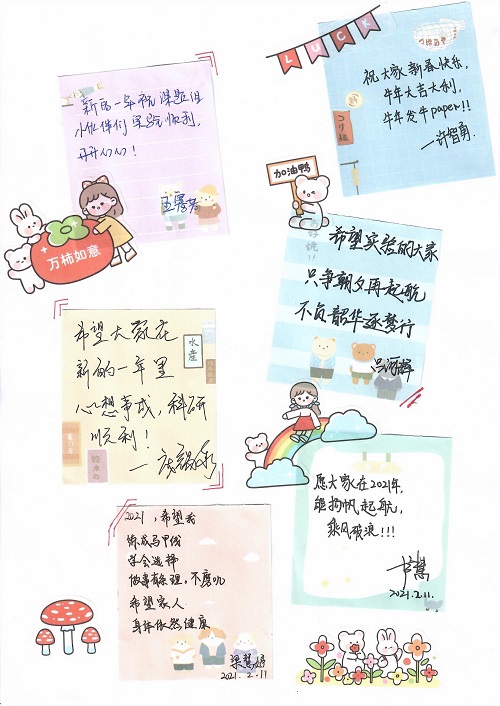 LUCK
新的一年祝课题组
小伙伴们实验顺利,
开开心心!
万柿如意
祝大家新春快乐,
牛年大吉大利,
牛年发牛paper!!
—许智勇.
加油鸭
希望实验的大家
只争朝夕再起航
不负韶华逐梦行
希望大家在
新的一年里
心想事成,科研
顺利!
水產
愿大家在2021年,
能扬帆起航,
乘风破浪!!!
2021.2.11.
2021,希望我
练成马甲线
学会选择
做事有条理,不磨叽
希望家人
身体依然健康
梁慧婷
2021.2.11